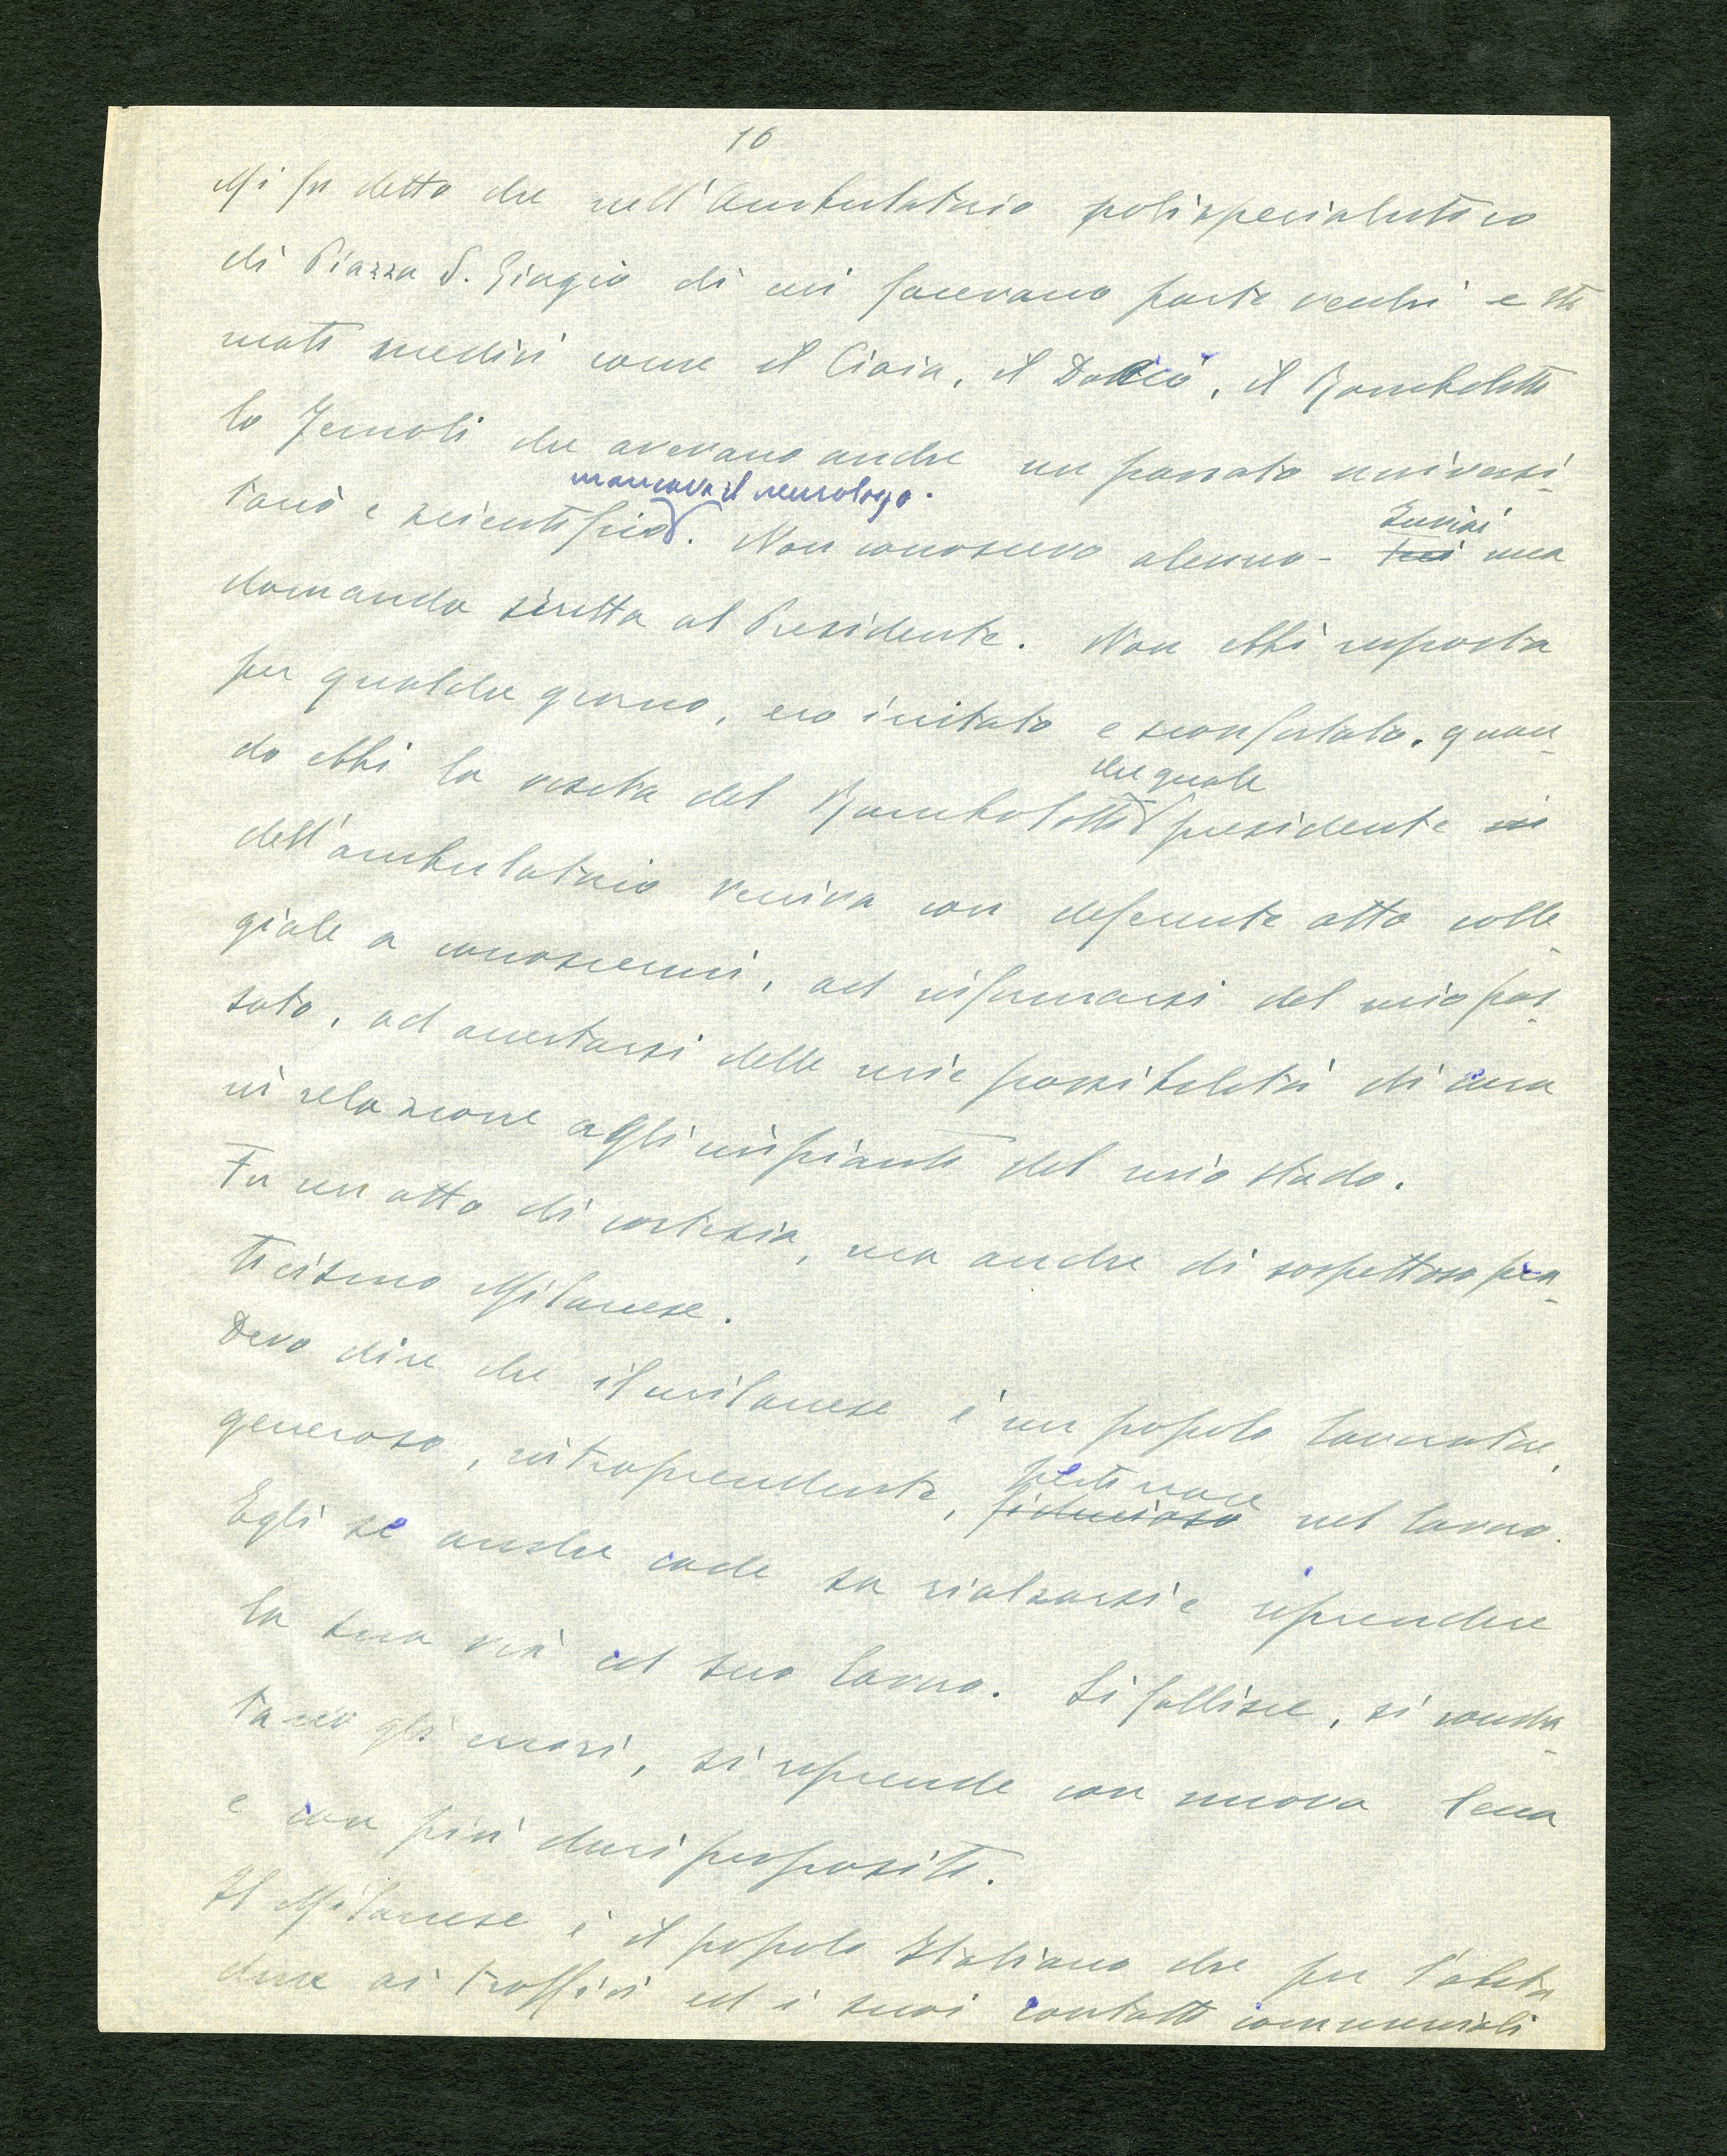 16
Mi fu detto che nell'Ambulatorio polispecialistico
di Piazza S. Giorgio di cui facevano parte vecchi e sti
mati medici come il Ciaia, il, il Bomboletti
lo Jemoli che avevano anche un passato universi-
mancava il neurologo.
tario e scientifico. Non conoscevo alcuno - Inviai
una
domanda scritta al Presidente. Non ebbi risposta
per qualche giorno, ero irritato e sconfortato, quan-
che quale
do ebbi la visita del Bombolotti presidente
dell'ambulatorio veniva con deferente atto colle-
giale a conoscermi, ad informarsi del mio pas-
sato, ad accertarsi delle mie possibilità di cura
in relazione agli impianti del mio studio.
Fu un atto di cortesia, ma anche di sospettoso pra-
ticismo Milanese.
Devo dire che il milanese è un popolo lavoratore,
pertinace
generoso, intraprendente, fiducioso nel lavoro.
Egli se anche cade sa rialzarsi e riprendere
la sua via ed suo lavoro. Si fallisce, si
gli errori, si riprende con nuova lena
e con più duri propositi.
Il Milanese è il popolo Italiano che per l'abitu
dine ai traffici ed i suoi contatti commerciali